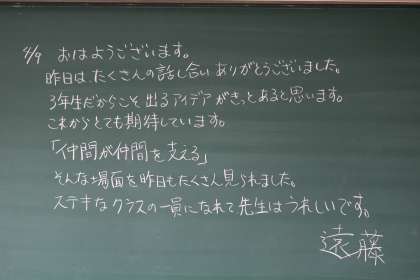 4/9 おはようございます。
昨日はたくさんの話し合いありがとうございました。
3年生だからこそ出るアイデアがきっとあると思います。
これからとても期待しています。
「仲間が仲間を支える」
そんな場面を昨日もたくさん見られました。
ステキなクラスの一員になれて先生はうれしいです。
遠藤